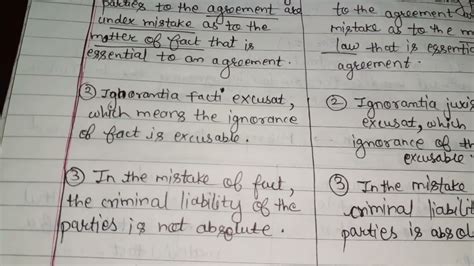 parties to the agreement are
under mistake as to the
matter of fact that is
essential to an agreement.
② Ignorantia facti excusat,
which means the ignorance
of fact is excusable.
③ In the mistake of fact,
the criminal liability of the
parties is not absolute.
to the agreement
mistake as to the m
law that is essentia
agreement.
② Ignorantia juris
excusat, which
ignorance of th
excusable
③ In the mistake
criminal liabilit
parties is absol